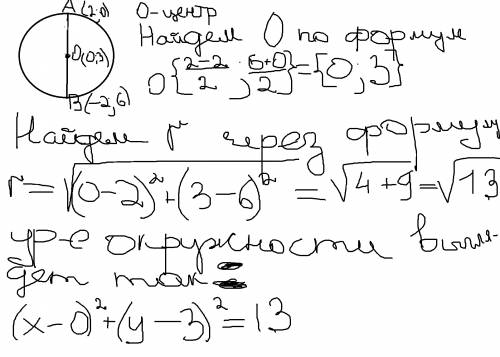 A(2;0)
О-центр
Найдем О по формул
O(0;3)
O{2-2/2; 6+0/2}={0;3}
B(-2;6)
Найдем r через формулу
r=√(0-2)²+(3-6)²=√4+9=√13
ур-е окружности выгля-
дет так
(x-0)²+(y-3)²=13